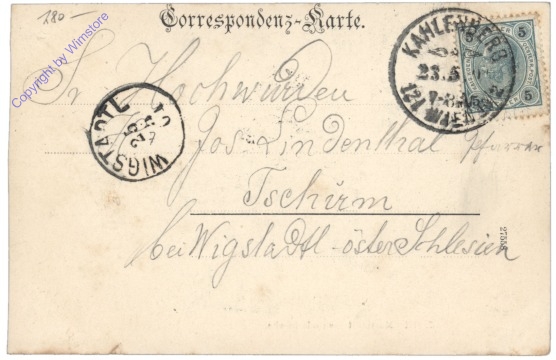 280-
Copyright by Wimstore
Correspondenz-Karte.
KAHLENBERG
23.5
121 WIEN
5
5
WIGSTADTL
Sr Hochwürden
Jos Lindenthal Pfarrer
Tschirm
bei Wigstadtl - österr Schlesien
27558